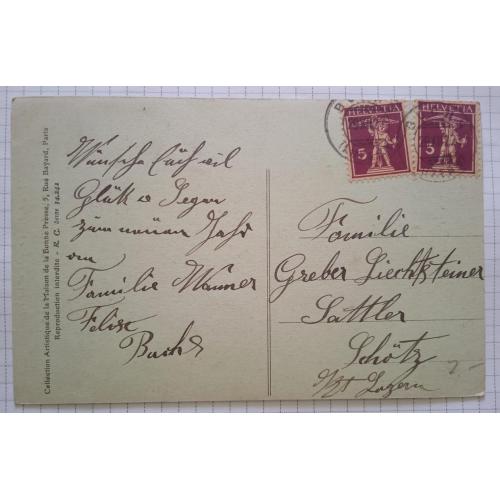 Collection Artistique de la Maison de la Bonne Presse, 5, Rue Bayard, Paris
Reproduction interdite - R. C. Seine 74.242
HELVETIA
5
HELVETIA
5
Wünsche Euch viel
Glück u Segen
zum neuen Jahr
von
Familie Wanner
Felix
Familie
Greber Liechtsteiner
Sattler
Schötz
Kt Luzern